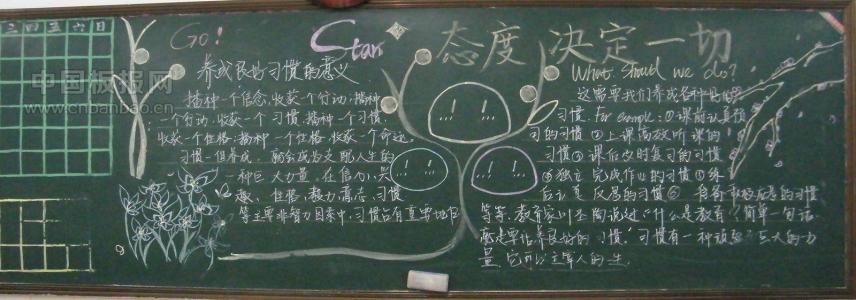 三四五六日
Go!
Star
态度决定一切
中国板报网
www.cnbanbao.cn
养成良好习惯的意义
播种一个信念,收获一个行动;播种
一个行动,收获一个习惯;播种一个习惯,
收获一个性格;播种一个性格,收获一个命运。
习惯一旦养成,就会成为支配人生的
一种巨大力量。在信心、兴
趣、性格、毅力、意志、习惯
等主要非智力因素中,习惯占有重要地位
What should we do?
这需要我们养成各种良好
习惯. for example: ①课前认真预
习的习惯②上课高效听课的
习惯③课后及时复习的习惯
④独立完成作业的习惯⑤练
后反思的习惯⑥
等等.教育家叶圣陶说过"什么是教育?简单一句话
就是要培养良好的习惯."习惯有一种顽强巨大的力
量它可以主宰人的一生.